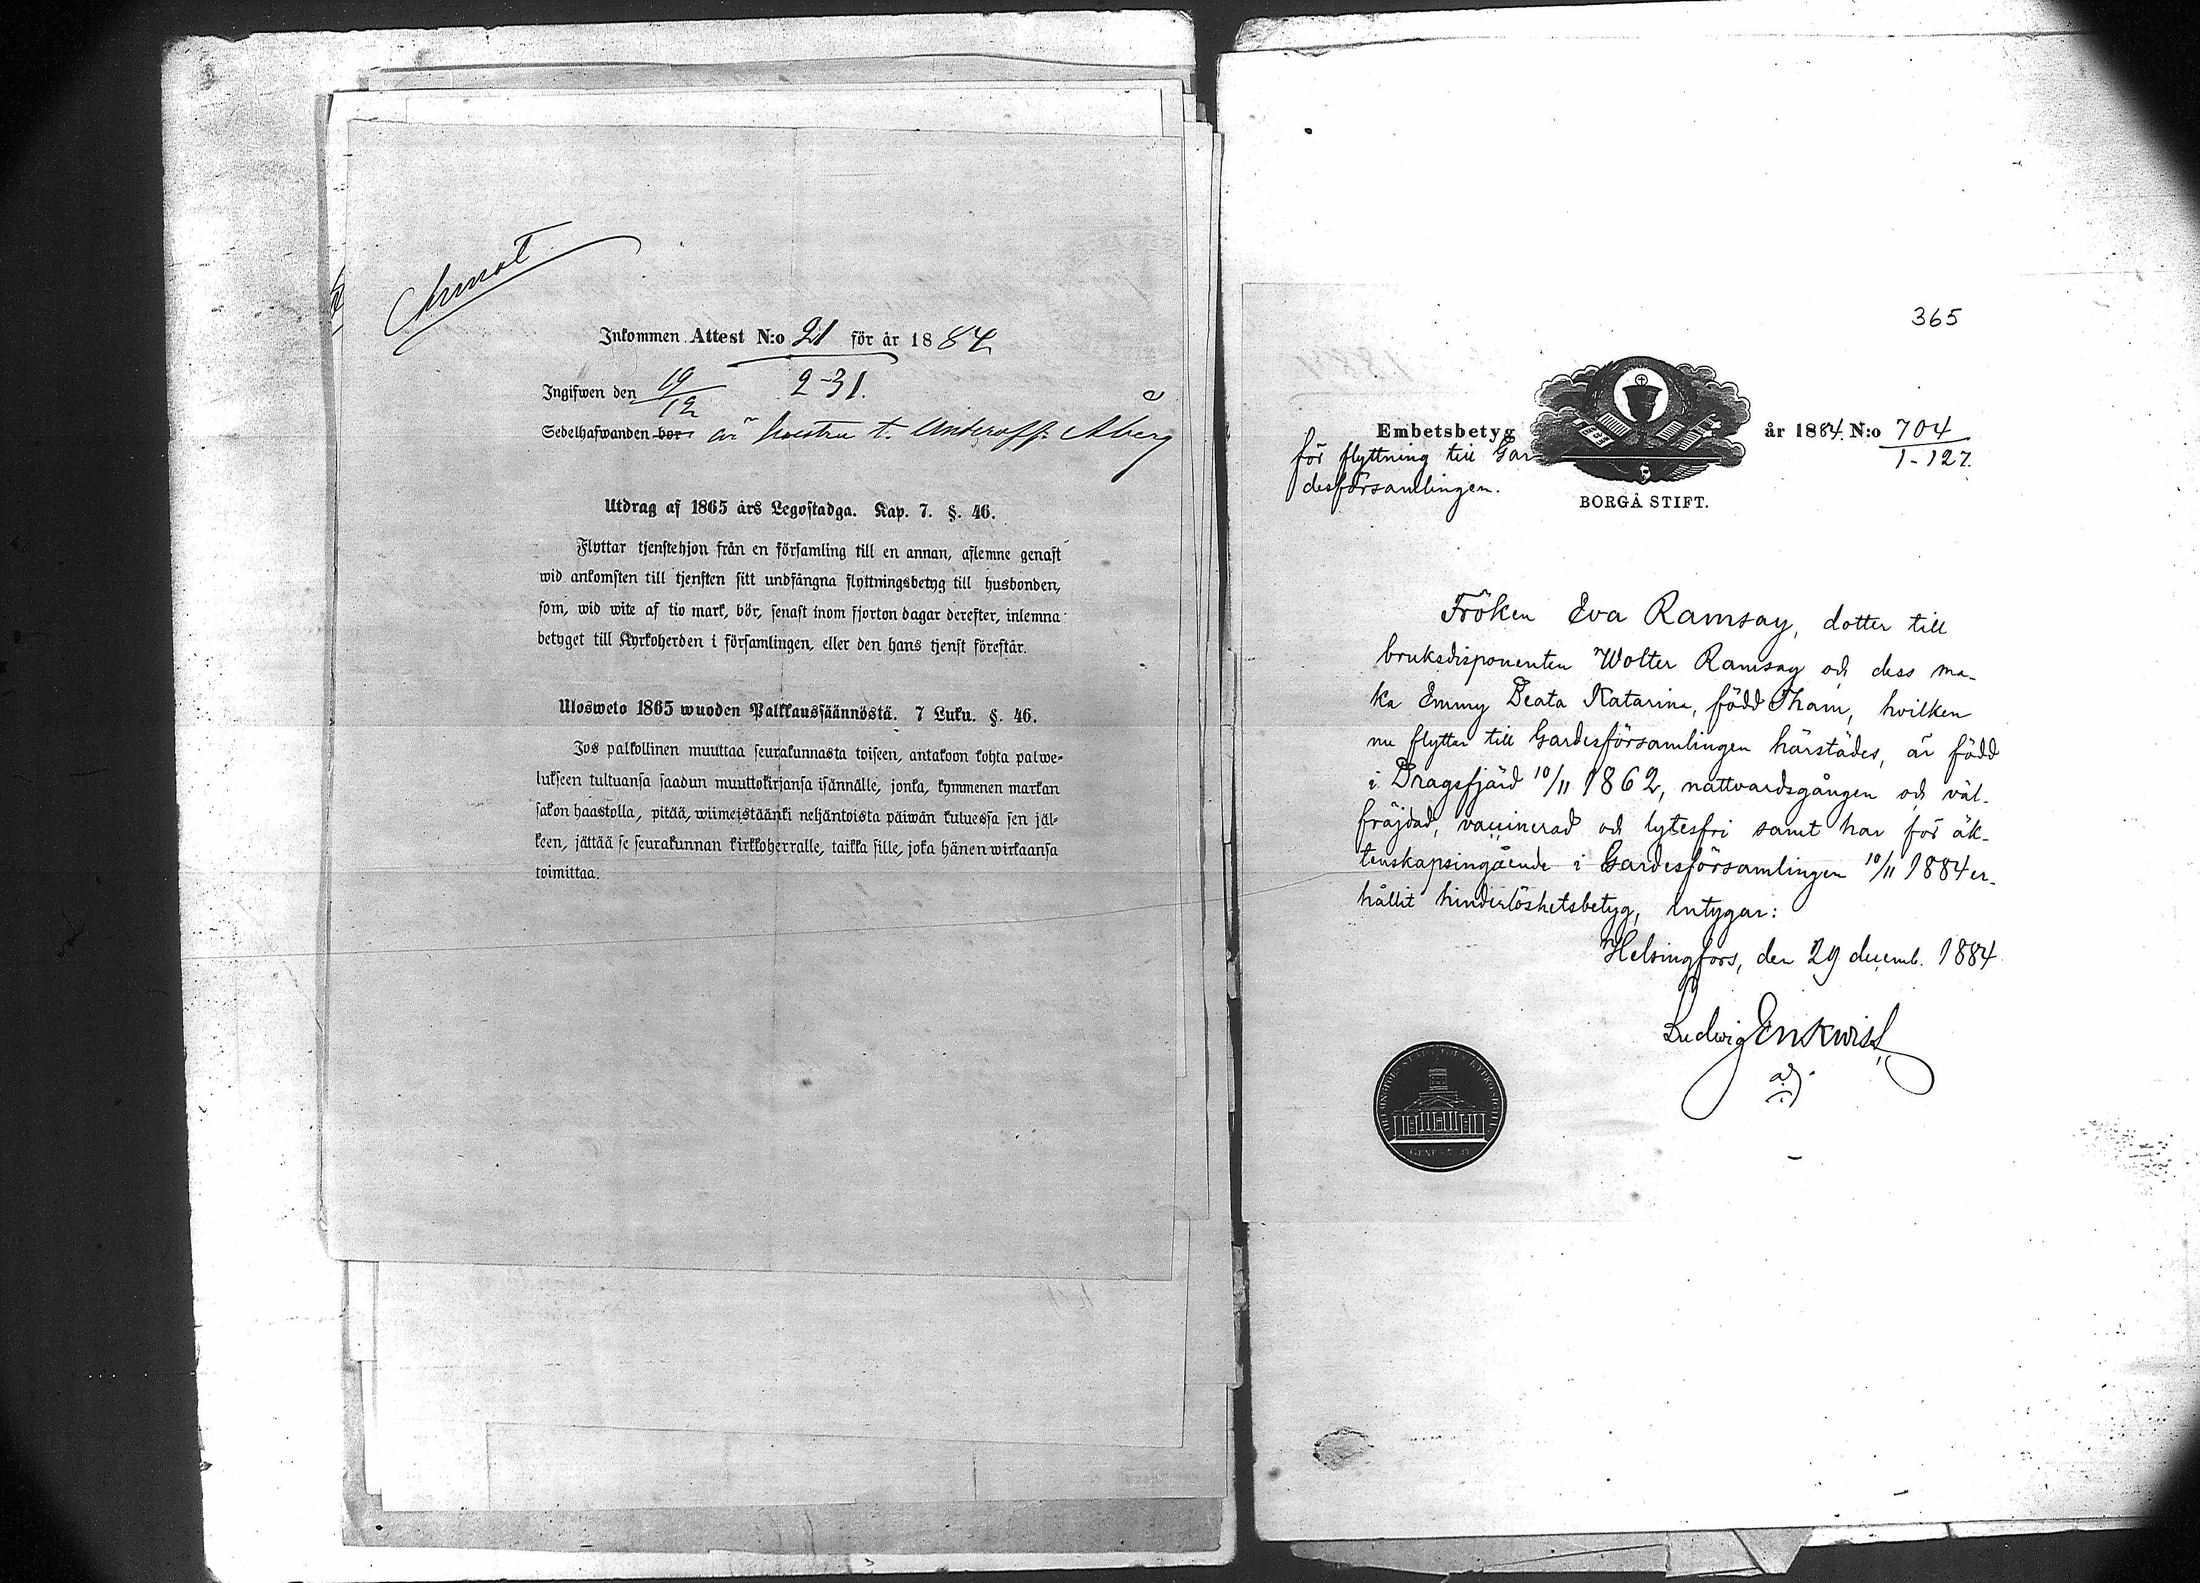 Annot
Inkommen Attest N:o 21 för år 1884
Ingifwen den 19/12 2-31.
Sedelhafwanden bor är hustru t. Underoff. Åberg
Utdrag af 1865 års Legostadga. Kap. 7. §. 46.
Flyttar tjenstehjon från en församling till en annan, aflemne genast
wid ankomsten till tjensten sitt undfångna flyttningsbetyg till husbonden,
som, wid wite af tio mark, bör, senast inom fjorton dagar derefter, inlemna
betyget till Kyrkoherden i församlingen, eller den hans tjenst förestår.
Ulosweto 1865 wuoden Palkkaussäännöstä. 7 Luku. §. 46.
Jos palkollinen muuttaa seurakunnasta toiseen, antakoon kohta palwe-
lukseen tultuansa saadun muuttokirjansa isännälle, jonka, kymmenen markan
sakon haastolla, pitää, wiimeistäänki neljäntoista päiwän kuluessa sen jäl-
keen, jättää se seurakunnan kirkkoherralle, taikka sille, joka hänen wirkaansa
toimittaa.
365
Embetsbetyg år 1884. N:o 704
för flyttning till Gar 1-127.
desförsamlingen.
BORGÅ STIFT.
Fröken Eva Ramsay, dotter till
bruksdisponenten Wolter Ramsay och dess ma-
ka Emmy Beata Katarina, född Tham, hvilken
nu flyttar till Gardesförsamlingen härstädes, är född
i Dragsfjärd 10/11 1862, nattvardsgången och väl-
fräjdad, vaccinerad och lytesfri samt har för äk-
tenskapsingående i Gardesförsamlingen 10/11 1884 er-
hållit hinderlöshetsbetyg, intygar:
Helsingfors, den 29 decemb. 1884
Ludwig Enkwist
adj.